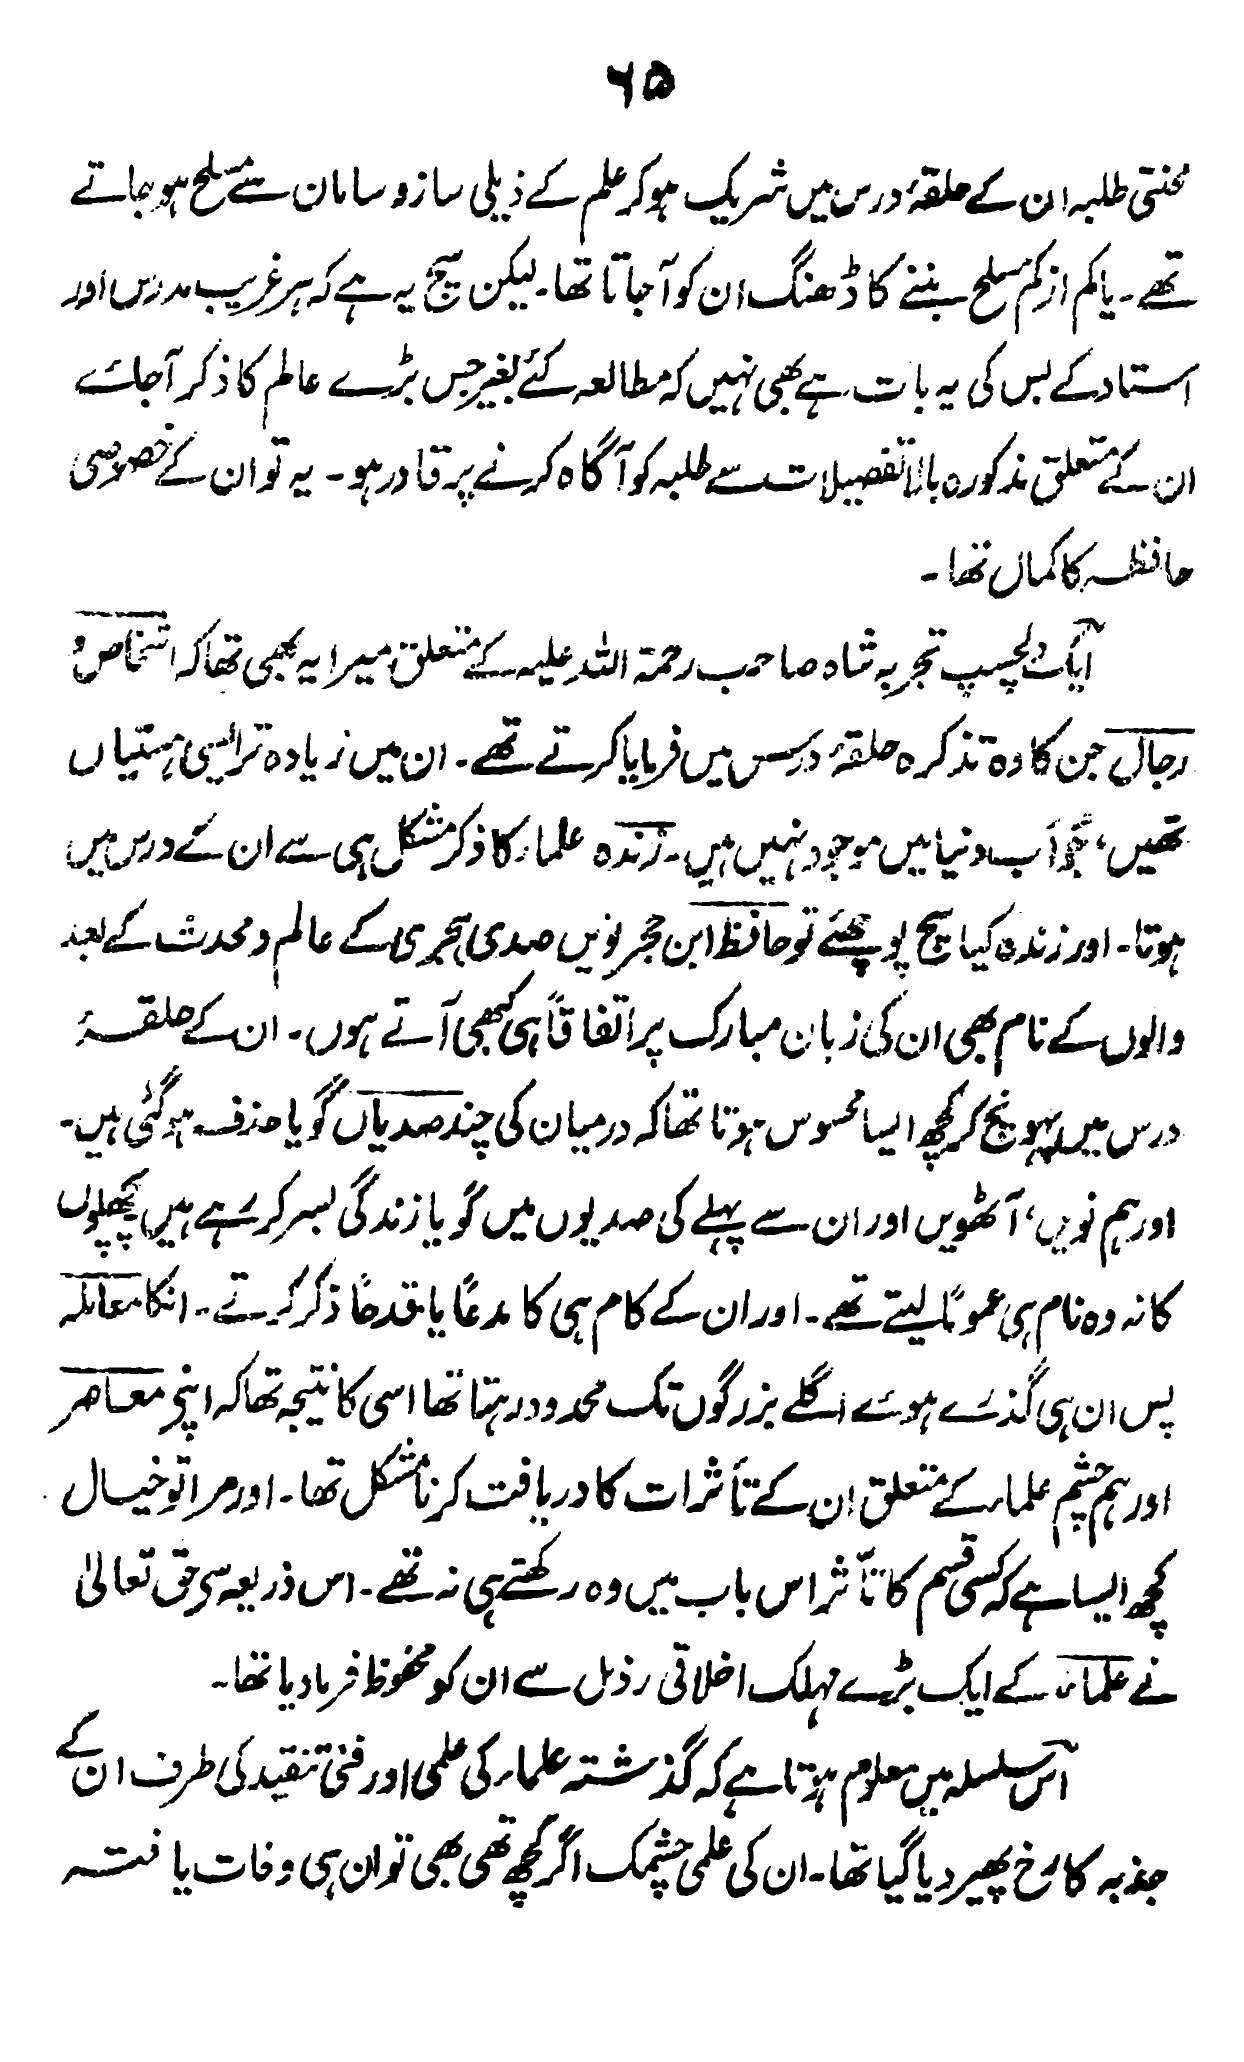 ۶۵
محنتی طلبہ ان کے حلقۂ درس میں شریک ہوکر علم کے ذیلی سازوسامان سے مسلح ہوجاتے
تھے۔ یا کم از کم مسلح بننے کا ڈھنگ ان کو آجاتا تھا۔ لیکن سچ یہ ہے کہ ہر غریب مدرس اور
استاد کے بس کی یہ بات ہے بھی نہیں کہ مطالعہ کئے بغیر جس بڑے عالم کا ذکر آجائے
ان کے متعلق مذکورہ بالا تفصیلات سے طلبہ کو آگاہ کرنے پر قادر ہو۔ یہ تو ان کے خصوصی
حافظہ کا کمال تھا۔
ایک دلچسپ تجربہ شاہ صاحب رحمۃ اللہ علیہ کے متعلق میرا یہ بھی تھا کہ اشخاص و
رجال جن کا وہ تذکرہ حلقۂ درس میں فرمایا کرتے تھے۔ ان میں زیادہ تر ایسی ہستیاں
تھیں، جو اب دنیا میں موجود نہیں ہیں۔ زندہ علماء کا ذکر مشکل ہی سے ان کے درس میں
ہوتا۔ اور زندہ کیا سچ پوچھئے تو حافظ ابن حجر نویں صدی ہجری کے عالم و محدث کے بعد
والوں کے نام بھی ان کی زبان مبارک پر اتفاقاً ہی کبھی آتے ہوں۔ ان کے حلقۂ
درس میں پہونچ کر کچھ ایسا محسوس ہوتا تھا کہ درمیان کی چند صدیاں گویا حذف ہوگئی ہیں۔
اور ہم نویں، آٹھویں اور ان سے پہلے کی صدیوں میں گویا زندگی بسر کر رہے ہیں پچھلوں
کا نہ وہ نام ہی عموماً لیتے تھے۔ اور ان کے کام ہی کا مدحاً یا قدحاً ذکر کرتے۔ انکا معاملہ
بس ان ہی گذرے ہوئے اگلے بزرگوں تک محدود رہتا تھا اسی کا نتیجہ تھا کہ اپنے معاصر
اور ہم چشم علماء کے متعلق ان کے تأثرات کا دریافت کرنا مشکل تھا۔ اور مرا تو خیال
کچھ ایسا ہے کہ کسی قسم کا تأثر اس باب میں وہ رکھتے ہی نہ تھے۔ اس ذریعہ سے حق تعالیٰ
نے علماء کے ایک بڑے مہلک اخلاقی رذل سے ان کو محفوظ فرما دیا تھا۔
اس سلسلہ میں معلوم ہوتا ہے کہ گذشتہ علماء کی علمی اور فنی تنقید کی طرف ان کے
جذبہ کا رخ پھیر دیا گیا تھا۔ ان کی علمی چشمک اگر کچھ تھی بھی تو ان ہی وفات یافتہ